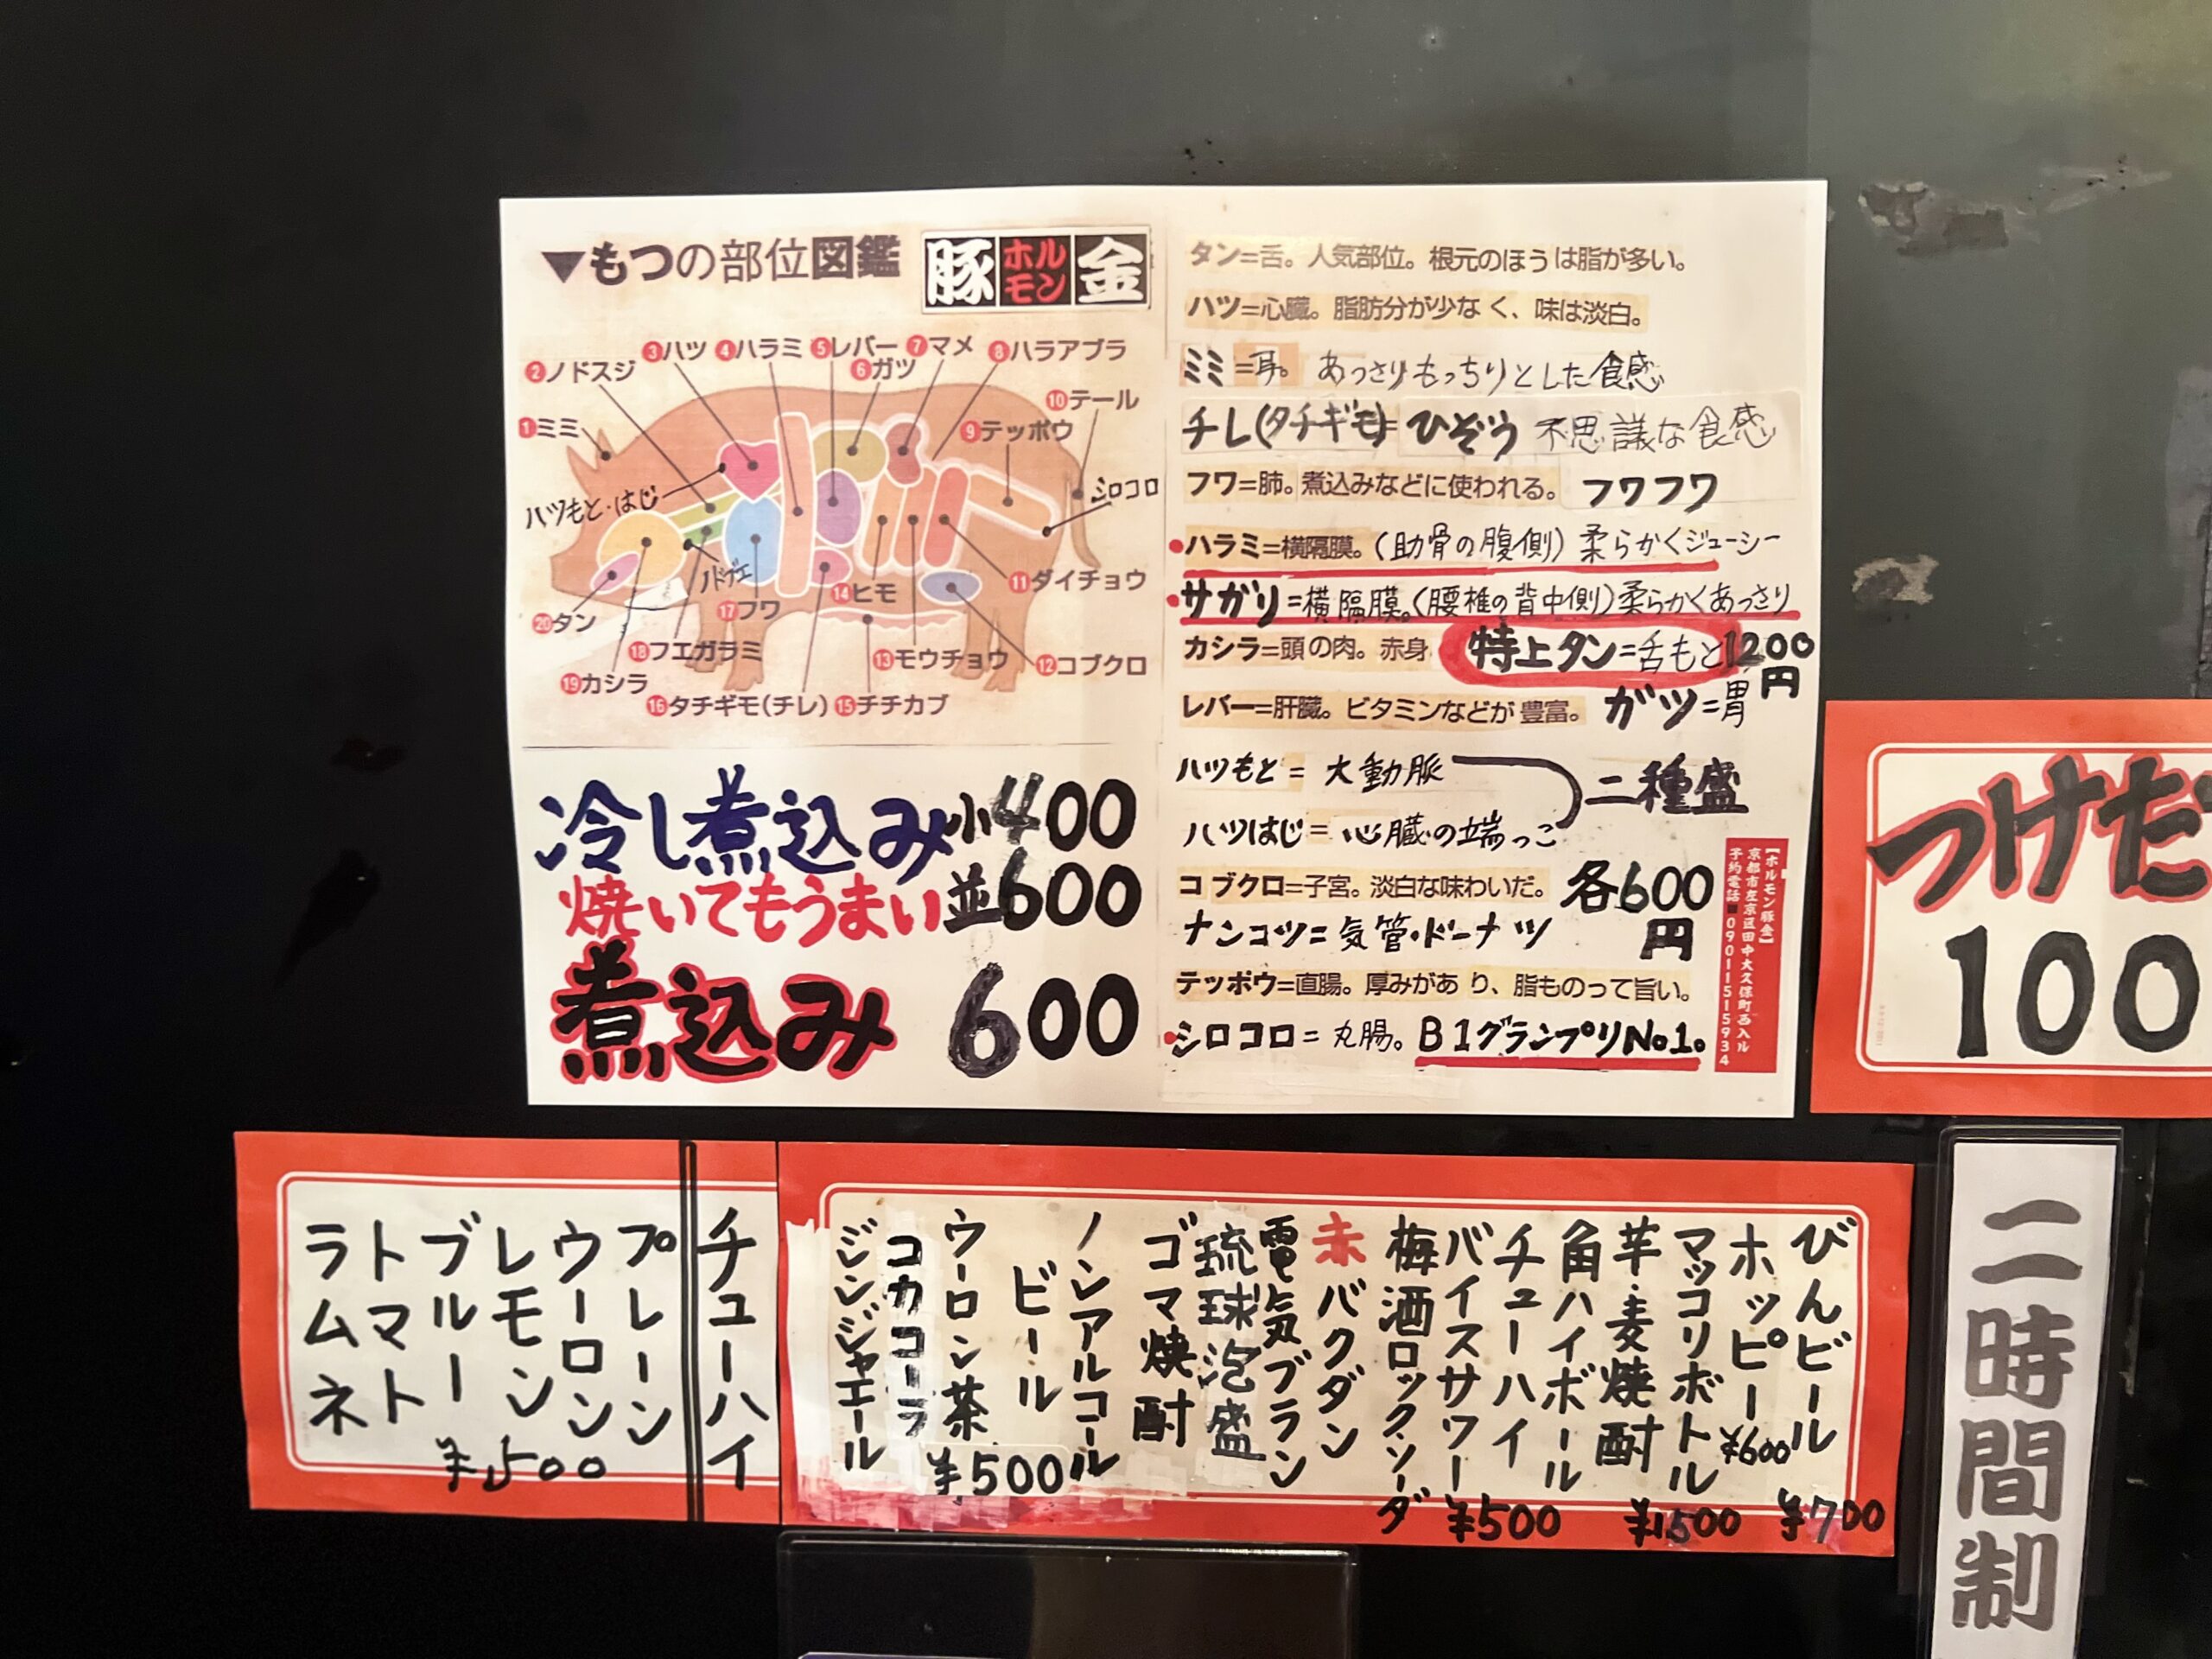 ▼もつの部位図鑑
豚ホルモン金
①ミミ
②ノドスジ
③ハツ
④ハラミ
⑤レバー
⑥ガツ
⑦マメ
⑧ハラアブラ
⑨テッポウ
⑩テール
シロコロ
⑪ダイチョウ
⑫コブクロ
⑬モウチョウ
⑭ヒモ
⑮チチカブ
⑯タチギモ(チレ)
⑰フワ
⑱フエガラミ
⑲カシラ
⑳タン
ハツもと・はじ
ノドブエ
冷し煮込み小400
焼いてもうまい並600
煮込み 600
タン=舌。人気部位。根元のほうは脂が多い。
ハツ=心臓。脂肪分が少なく、味は淡白。
ミミ=耳。あっさりもっちりとした食感
チレ(タチギモ)=ひぞう 不思議な食感
フワ=肺。煮込みなどに使われる。フワフワ
・ハラミ=横隔膜。(助骨の腹側)柔らかくジューシー
・サガリ=横隔膜。(腰椎の背中側)柔らかくあっさり
カシラ=頭の肉。赤身
特上タン=舌もと1200円
レバー=肝臓。ビタミンなどが豊富。
ガツ=胃
ハツもと=大動脈
ハツはじ=心臓の端っこ
二種盛
コブクロ=子宮。淡白な味わいだ。
各600円
ナンコツ=気管・ドーナツ
テッポウ=直腸。厚みがあり、脂ものって旨い。
・シロコロ=丸腸。B1グランプリNo1。
【ホルモン豚金】
京都市左京区田中大久保町西入ル
予約電話 09011515934
つけだ
100
二時間制
びんビール ¥700
ホッピー ¥600
マッコリボトル ¥1500
芋・麦焼酎
角ハイボール
チューハイ
バイスサワー ¥500
梅酒ロック・ソーダ
赤バクダン
電気ブラン
琉球泡盛
ゴマ焼酎
ノンアルコール
ビール
ウーロン茶 ¥500
コカコーラ
ジンジャエール
チューハイ
プレーン
ウーロン
レモン
ブルー
トマト
ラムネ
¥500